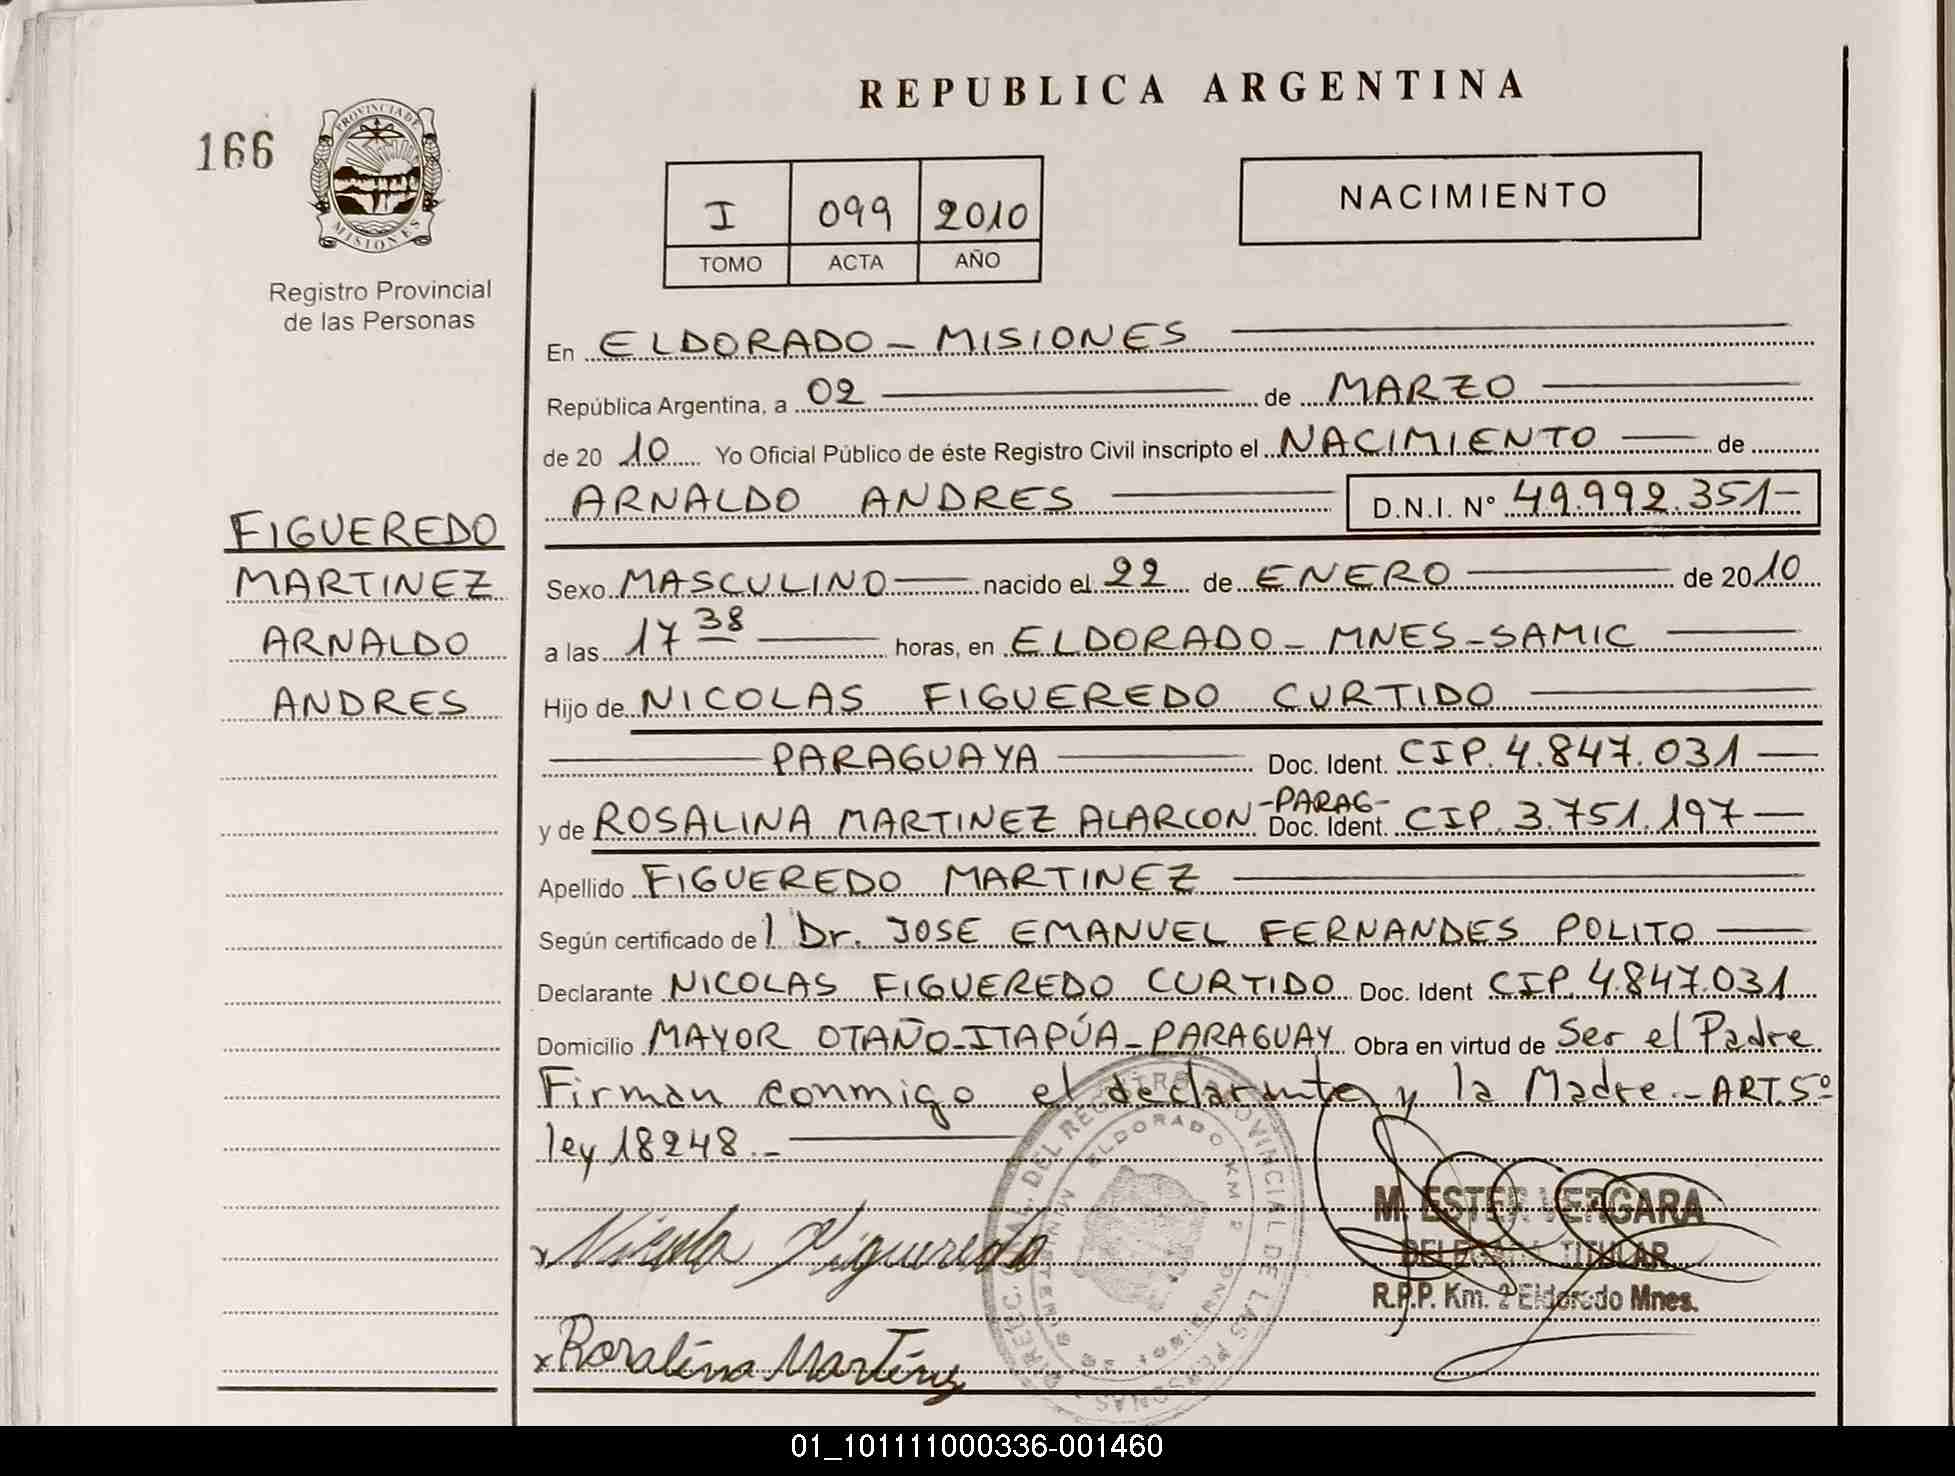 REPUBLICA ARGENTINA
166
PROVINCIA DE
MISIONES
Registro Provincial
de las Personas
I 099 2010
TOMO ACTA AÑO
NACIMIENTO
En ELDORADO - MISIONES
República Argentina, a 02 de MARZO
de 2010 Yo Oficial Público de éste Registro Civil inscripto el NACIMIENTO de
ARNALDO ANDRES D.N.I. N° 49.992.351-
FIGUEREDO
MARTINEZ
ARNALDO
ANDRES
Sexo MASCULINO nacido el 22 de ENERO de 2010
a las 17 38 horas, en ELDORADO - MNES - SAMIC
Hijo de NICOLAS FIGUEREDO CURTIDO
PARAGUAYA Doc. Ident. CIP. 4.847.031
y de ROSALINA MARTINEZ ALARCON -PARAG- Doc. Ident. CIP. 3.751.197
Apellido FIGUEREDO MARTINEZ
Según certificado de l Dr. JOSE EMANUEL FERNANDES POLITO
Declarante NICOLAS FIGUEREDO CURTIDO Doc. Ident CIP. 4.847.031
Domicilio MAYOR OTAÑO-ITAPÚA-PARAGUAY Obra en virtud de Ser el Padre
Firman conmigo el declarante y la Madre.- ART.5º
ley 18248.-
DEL REGISTRO PROVINCIAL DE LAS PERSONAS
ELDORADO KM 2
M. ESTER VERGARA
DELEGADA TITULAR
R.P.P. Km. 2 Eldorado Mnes.
x Nicolas Figueredo
x Rosalina Martinez
01_101111000336-001460